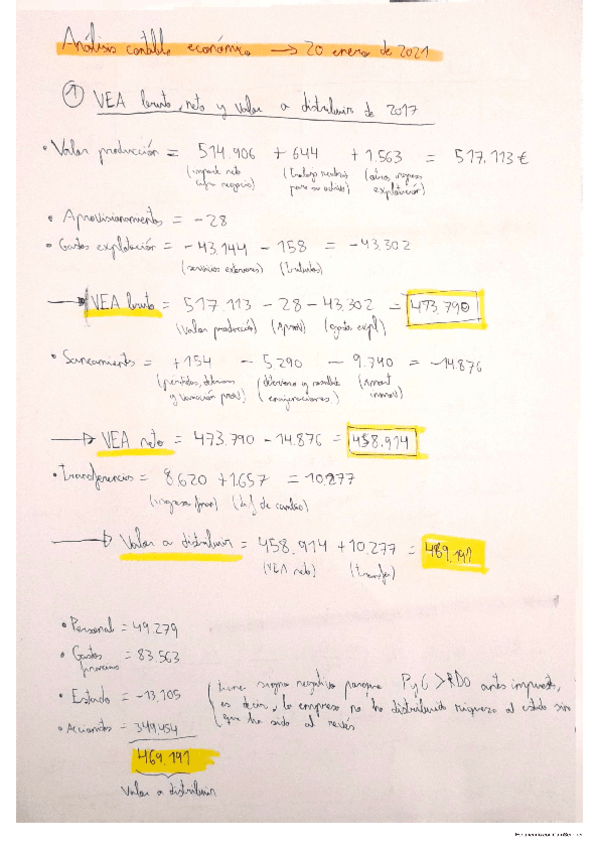 Análisis contable económico → 20 enero de 2021
① VEA bruto, neto y valor a distribuir de 2017
• Valor producción = 514.906 + 644 + 1.563 = 517.113 €
(importe neto (trabajo realiz. (otros ingresos
cifra negocio) para su activo) explotación)
• Aprovisionamientos = -28
• Gastos explotación = -43.144 - 158 = -43.302
(servicios exteriores) (tributos)
→ VEA bruto = 517.113 - 28 - 43.302 = 473.790
(valor producción) (Aprov) (gastos expl)
• Saneamiento = +154 - 5.290 - 9.740 = -14.876
(pérdidas, deterioro (deterioro y resultado (Amort
y variación prov) enajenaciones) inmov)
→ VEA neto = 473.790 - 14.876 = 458.914
• Transferencias = 8.620 + 1.657 = 10.277
(ingresos finan) (dif de cambio)
→ Valor a distribuir = 458.914 + 10.277 = 469.191
(VEA neto) (transfer)
• Personal = 49.279
• Gastos financieros = 83.563
• Estado = -13.105 (tiene signo negativo porque PyG > RDO antes impuesto,
es decir, la empresa no ha distribuido riqueza al estado sin
que ha sido al revés
• Accionistas = 349.454
469.191
Valor a distribuir